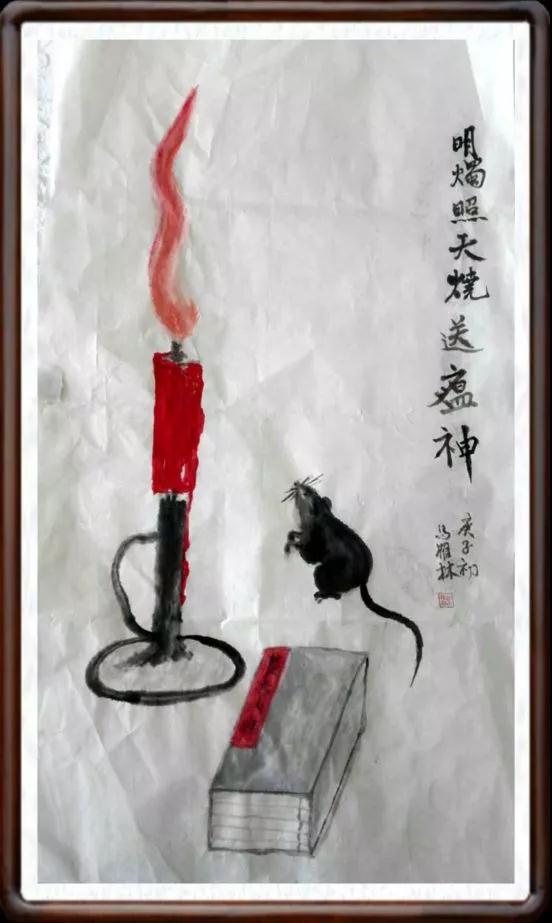 明燭照天燒送瘟神
庚子初
馬雅林